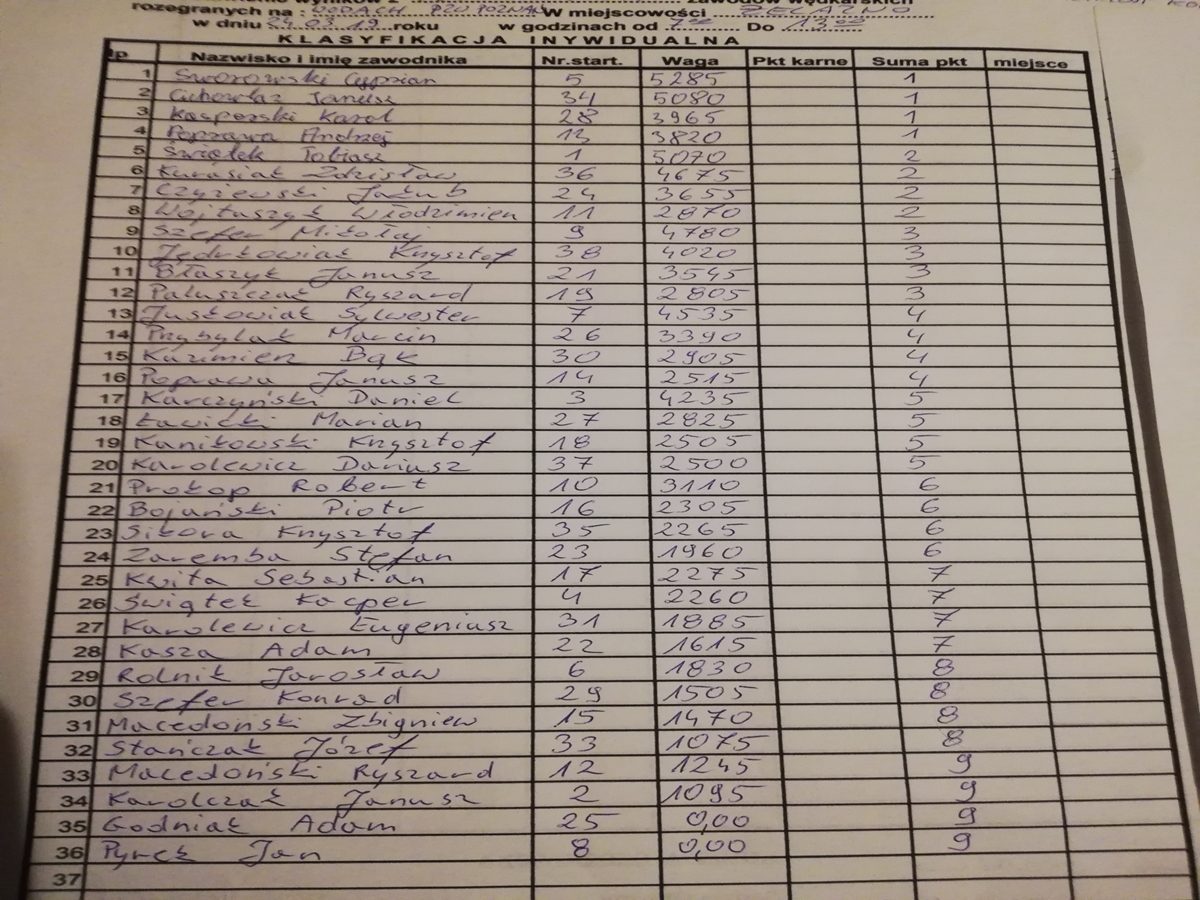 rozegranych na : WODACH PZW POZNAŃ W miejscowości ŻELAZNO
w dniu 24.03.19 roku w godzinach od Do 13
KLASYFIKACJA INYWIDUALNA
lp Nazwisko i imię zawodnika Nr.start. Waga Pkt karne Suma pkt miejsce
1 Sworowski Cyprian 5 5285 1
2 Janusz 34 5080 1
3 Kasperski Karol 28 3965 1
4 Poprawa Andrzej 13 3820 1
5 Świątek Tobiasz 1 5070 2
6 Kurasiak Zdzisław 36 4675 2
7 Czyżewski Jakub 24 3655 2
8 Wojtaszyk Włodzimierz 11 2870 2
9 Szefer Mikołaj 9 4780 3
10 Jędrkowiak Krzysztof 38 4020 3
11 Błaszyk Janusz 21 3545 3
12 Paluszczak Ryszard 19 2805 3
13 Juskowiak Sylwester 7 4535 4
14 Przybylak Marcin 26 3390 4
15 Kazimierz Bąk 30 2905 4
16 Poprawa Janusz 14 2515 4
17 Karczyński Daniel 3 4235 5
18 Ławicki Marian 27 2825 5
19 Kanikowski Krzysztof 18 2505 5
20 Karolewicz Dariusz 37 2500 5
21 Prokop Robert 10 3110 6
22 Bojański Piotr 16 2305 6
23 Sikora Krzysztof 35 2265 6
24 Zaremba Stefan 23 1960 6
25 Kwita Sebastian 17 2275 7
26 Świątek Kacper 4 2260 7
27 Karolewicz Eugeniusz 31 1885 7
28 Kasza Adam 22 1615 7
29 Rolnik Jarosław 6 1830 8
30 Szefer Konrad 29 1505 8
31 Macedoński Zbigniew 15 1470 8
32 Stańczak Józef 33 1075 8
33 Macedoński Ryszard 12 1245 9
34 Karolczak Janusz 2 1095 9
35 Godniak Adam 25 0,00 9
36 Pyrek Jan 8 0,00 9
37